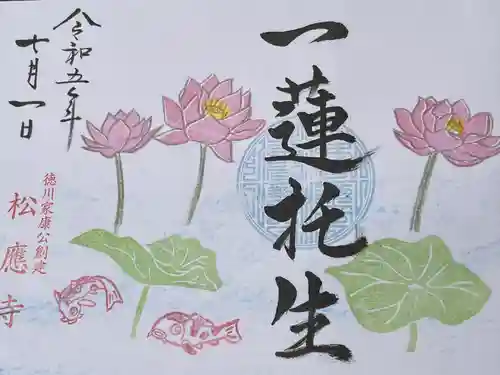 一蓮托生
令和五年
七月一日
徳川家康公創建
松應寺